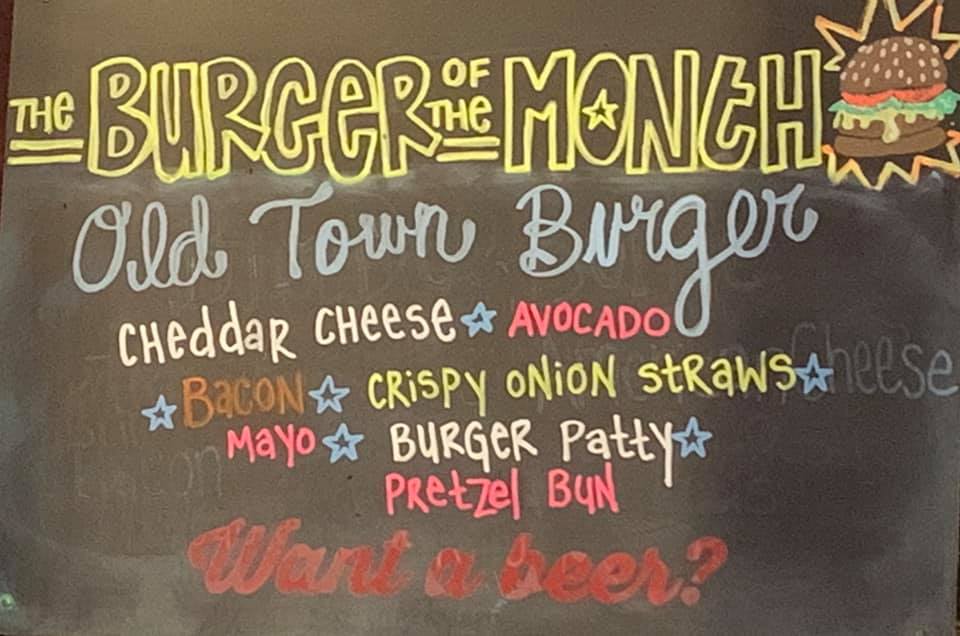 THE BURGER OF THE MONTH
Old Town Burger
CHeddaR CHeese☆ AVOCADO
☆BaCON☆ CRISPY ONION StRaWS☆
Mayo☆ BURGER Patty☆
PRetzel BUN
Want a beer?